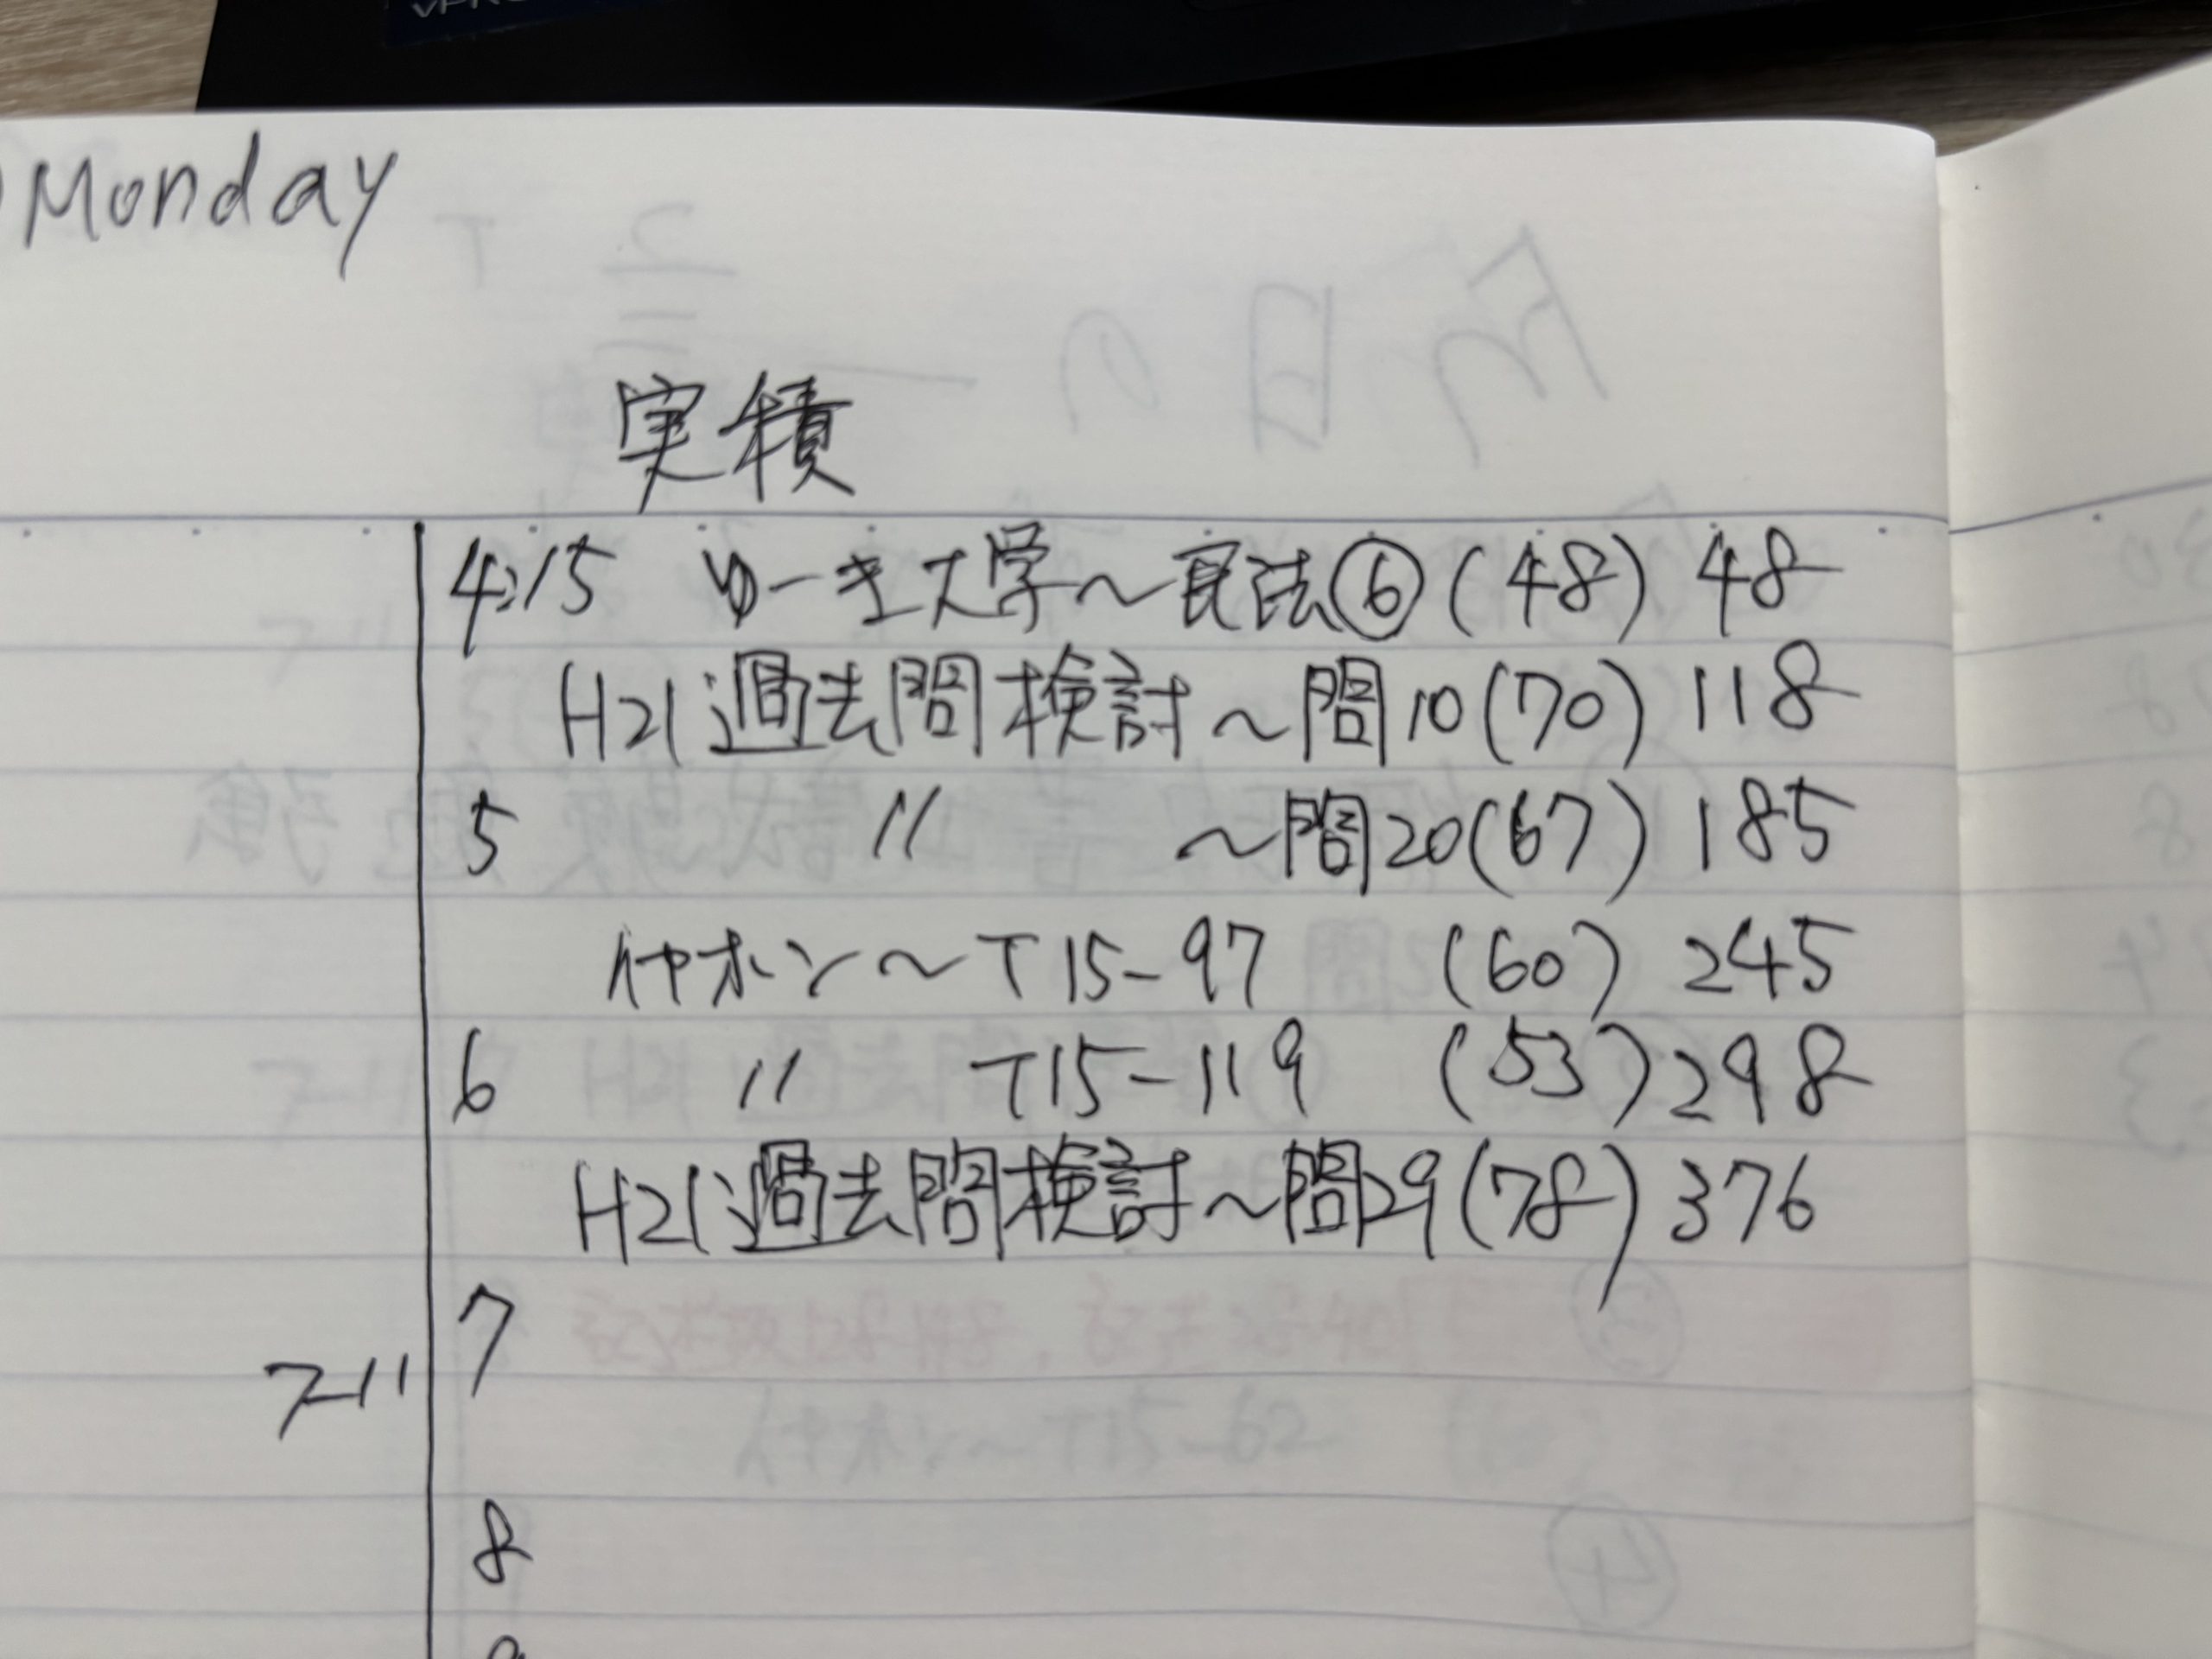 Monday
実積
4:15 ゆーき大学～民法⑥(48) 48
H21過去問検討～問10(70) 118
5 〃 ～問20(67) 185
イヤホン～T15-97 (60) 245
6 〃 T15-119 (53) 298
H21過去問検討～問29(78) 376
7
7-11
8